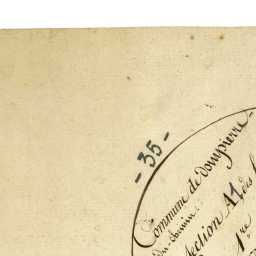 - 35 -
Commune de dompierre
Section A1 dis
1re